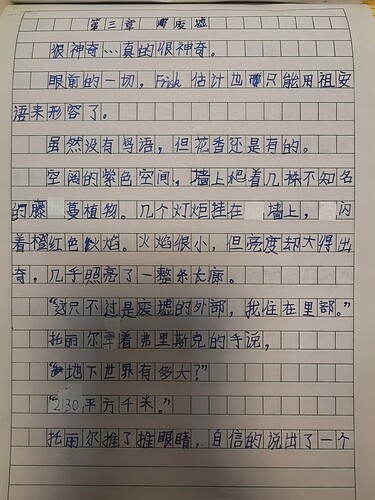 第三章 废墟
很神奇…真的很神奇。
眼前的一切，Frisk 估计也只能用祖安
语来形容了。
虽然没有鸟语，但花香还是有的。
空阔的紫色空间，墙上爬着几株不知名
的藤蔓植物。几个灯炬挂在墙上，闪
着橙红色火焰。火焰很小，但亮度却大得出
奇，几乎照亮了一整条长廊。
“这只不过是废墟的外部，我住在里部。”
托丽尔牵着弗里斯克的手说，
“地下世界有多大？”
“2130平方千米。”
托丽尔推了推眼睛，自信的说出了一个